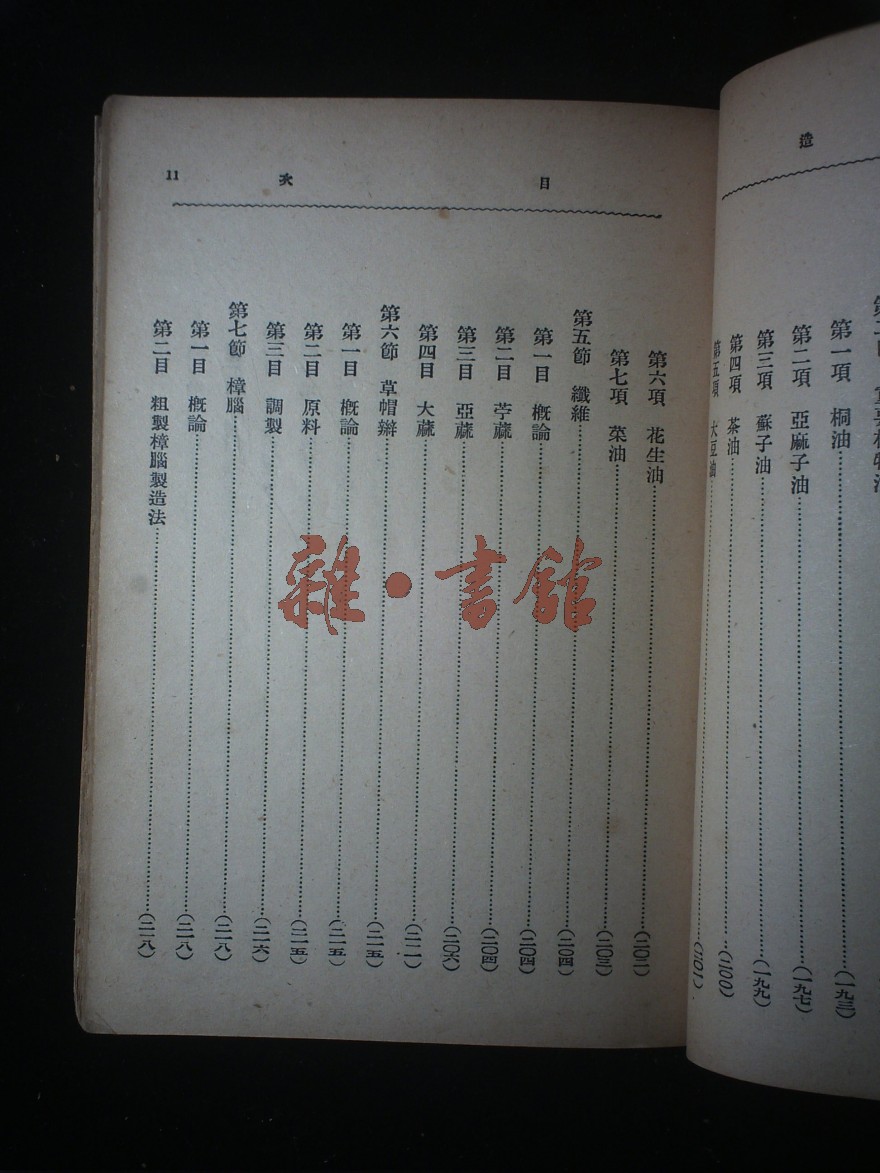 造
第一項 桐油……(一九三)
第二項 亞麻子油……(一九七)
第三項 蘇子油……(一九九)
第四項 茶油……(二〇〇)
第五項 大豆油……(二〇一)
目次 11
第六項 花生油……(二〇二)
第七項 菜油……(二〇三)
第五節 纖維……(二〇四)
第一目 概論……(二〇四)
第二目 苧蔴……(二〇四)
第三目 亞蔴……(二〇六)
第四目 大蔴……(二一一)
第六節 草帽辮……(二一五)
第一目 概論……(二一五)
第二目 原料……(二一五)
第三目 調製……(二一六)
第七節 樟腦……(二一八)
第一目 概論……(二一八)
第二目 粗製樟腦製造法……(二一八)
雜·書館